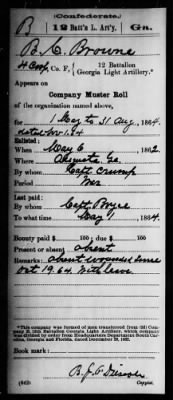 (Confederate.)
B 12 Batt'n L. Art'y. Ga.
B. C. Browne
Co. F, 12 Battalion
Georgia Light Artillery.*
Appears on
Company Muster Roll
of the organization named above,
for 1 May to 31 Aug, 1864.
dated Nov 1. 64
Enlisted:
When May 6, 1862
Where Augusta Ga.
By whom Capt Crump
Period War
Last paid:
By whom Capt
To what time May 1, 1864.
Bounty paid $ 100; due $ 100
Present or absent absent
Remarks: absent wounded since
19. 64. with leave
*This company was formed of men transferred from (2d) Company
B, 12th Battalion Georgia Light Artillery, which company
was divided by order from Headquarters Department South Carolina,
Georgia and Florida, dated December 28, 1862.
Book mark:
(642) Copyist.